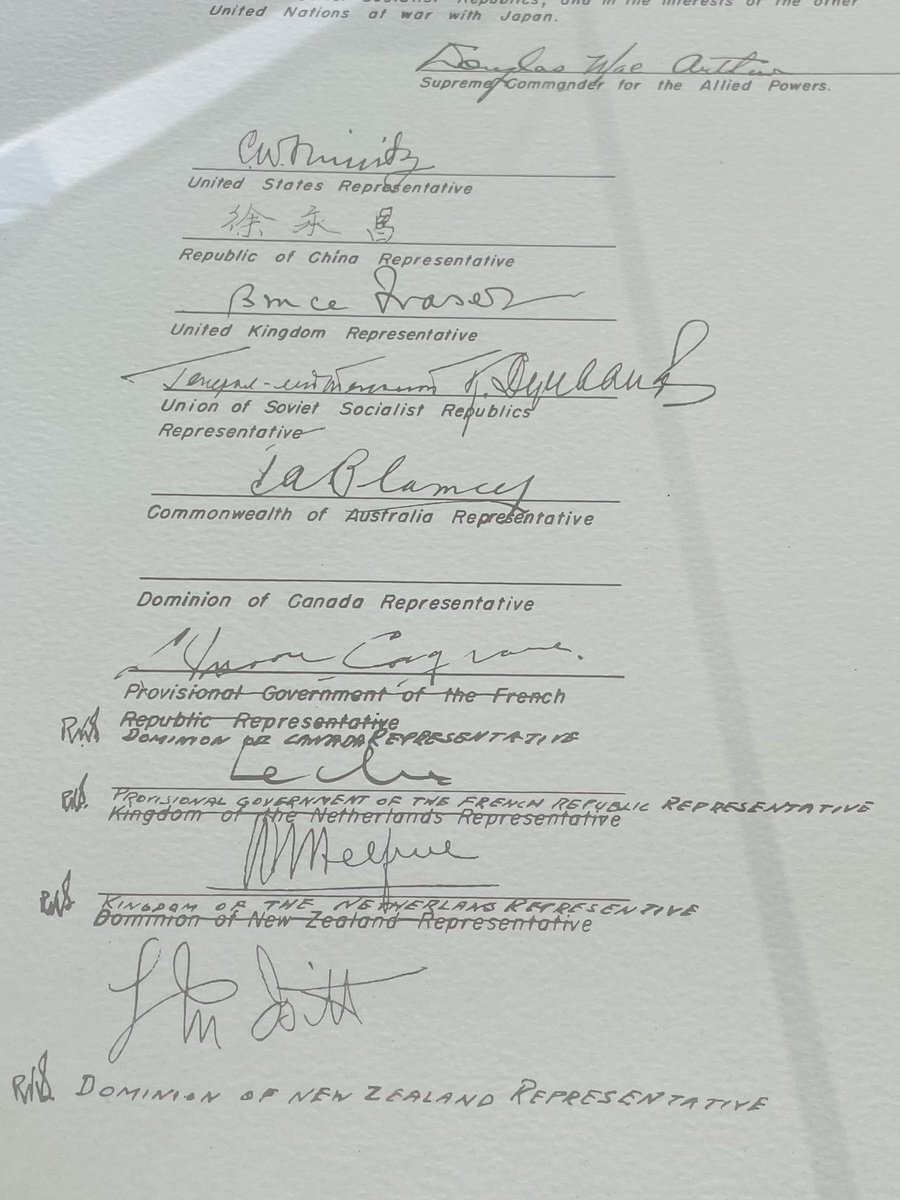 United Nations at war with Japan.
Douglas MacArthur
Supreme Commander for the Allied Powers.
C.W. Nimitz
United States Representative
徐永昌
Republic of China Representative
Bruce Fraser
United Kingdom Representative
Union of Soviet Socialist Republics
Representative
T a Blamey
Commonwealth of Australia Representative
Dominion of Canada Representative
Cosgrave.
Provisional Government of the French
Republic Representative
DOMINION OF CANADA REPRESENTATIVE
Leclerc
PROVISIONAL GOVERNMENT OF THE FRENCH REPUBLIC REPRESENTATIVE
Kingdom of the Netherlands Representative
Helfrich
KINGDOM OF THE NETHERLAND REPRESENTIVE
Dominion of New Zealand Representative
L M Isitt
DOMINION OF NEW ZEALAND REPRESENTATIVE